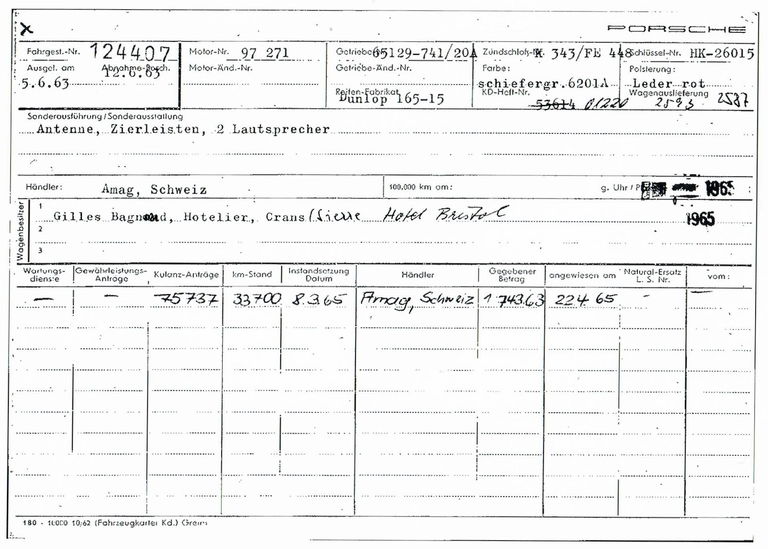 X PORSCHE
Fahrgest.-Nr. 124407 Motor-Nr. 97 271 Getriebe 65129-741/20A Zündschloß-Nr. K 343/FE 448 Schlüssel-Nr. HK-26015
Ausgel. am 5.6.63 Abnahme-Besch. 12.6.63 Motor-Änd.-Nr. Getriebe-Änd.-Nr. Farbe: schiefergr.6201A Polsterung: Leder rot
Reifen-Fabrikat Dunlop 165-15 KD-Heft-Nr. 53614 01220 Wagenauslieferung 2593 2587
Sonderausführung/Sonderausstattung
Antenne, Zierleisten, 2 Lautsprecher
Händler: Amag, Schweiz 100.000 km am: g. Uhr / 1965
Wagenbesitzer
1 Gilles, Hotelier, Crans/Sierre Hotel Bristol
2 1965
3
Wartungs-dienste Gewährleistungs-Anträge Kulanz-Anträge km-Stand Instandsetzung Datum Händler Gegebener Betrag angewiesen am Natural-Ersatz L. S. Nr. vom:
— — 75737 33700 8.3.65 Amag, Schweiz 1 743.63 22.4.65 - —
180 - 10000 10/62 (Fahrzeugkartei Kd.) Greins